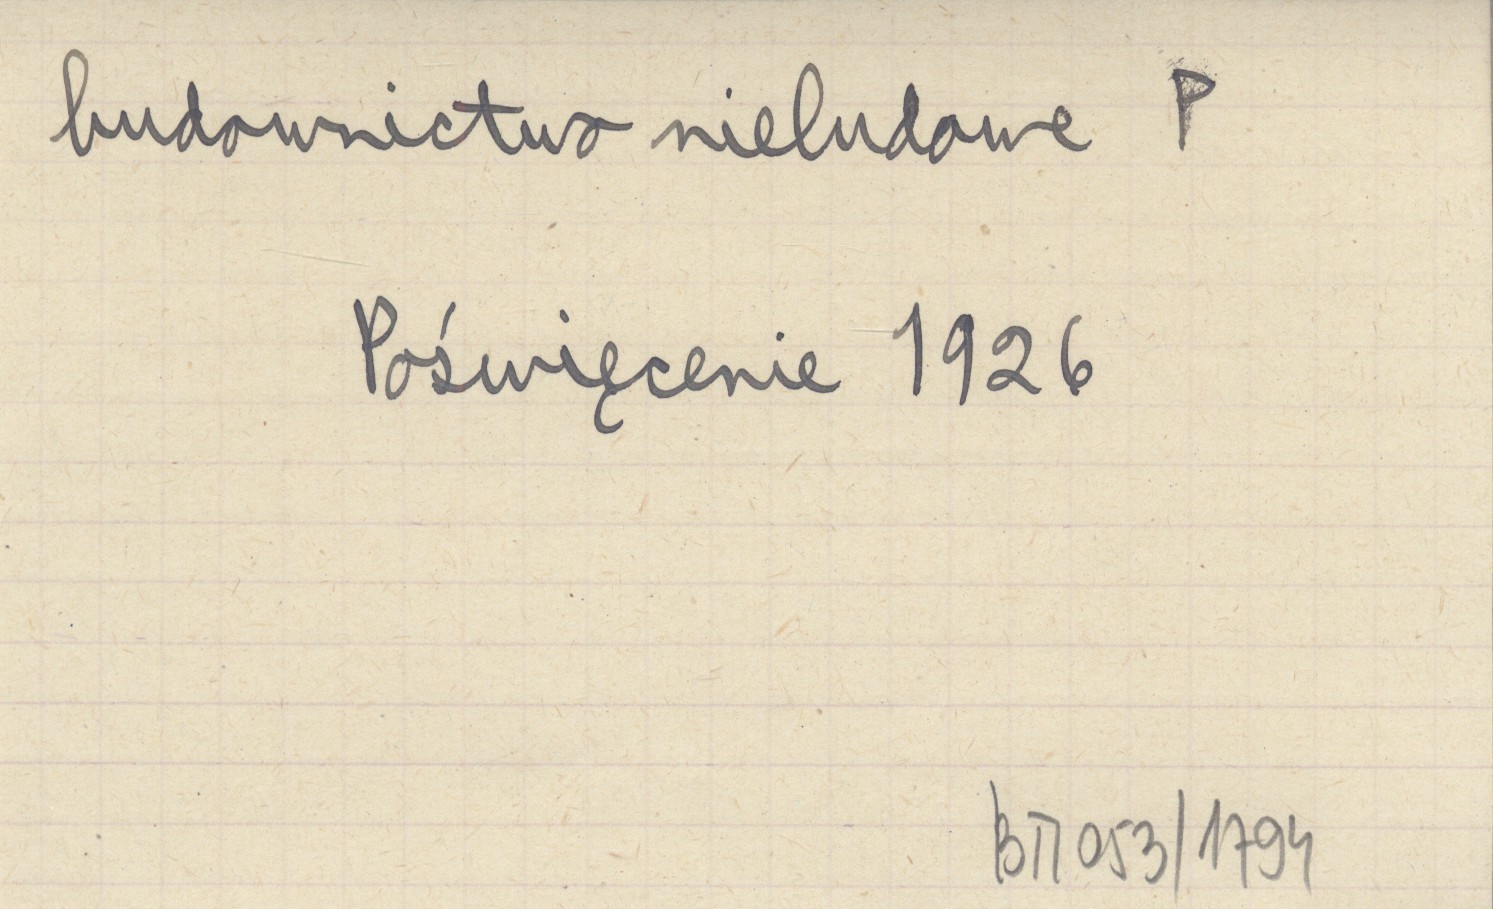 budownictwo nieludowe P
Poświęcenie 1926
BП 053/1794